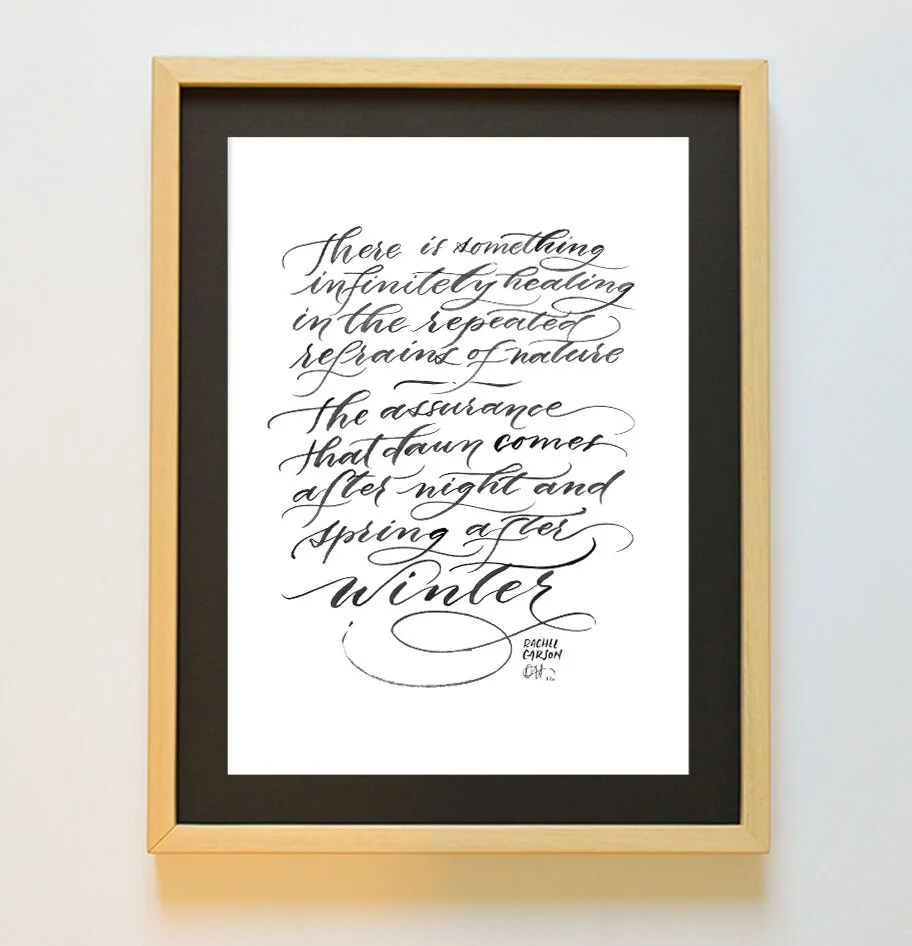 There is something
infinitely healing
in the repeated
refrains of nature
the assurance
that dawn comes
after night and
spring after
winter
RACHEL
CARSON